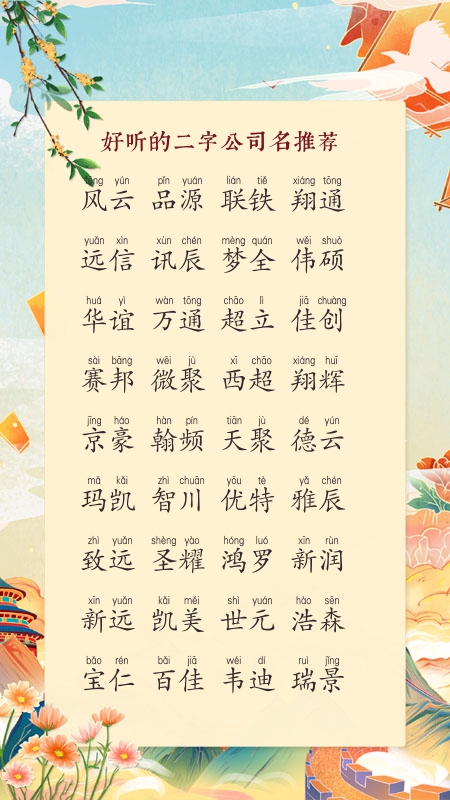 好听的二字公司名推荐
fēng yún pǐn yuán lián tiě xiáng tōng
风云 品源 联铁 翔通
yuǎn xìn xùn chén mèng quán wěi shuò
远信 讯辰 梦全 伟硕
huá yì wàn tōng chāo lì jiā chuàng
华谊 万通 超立 佳创
sài bāng wēi jù xī chāo xiáng huī
赛邦 微聚 西超 翔辉
jīng háo hàn pín tiān jù dé yún
京豪 翰频 天聚 德云
mǎ kǎi zhì chuān yōu tè yǎ chén
玛凯 智川 优特 雅辰
zhì yuǎn shèng yào hóng luó xīn rùn
致远 圣耀 鸿罗 新润
xīn yuǎn kǎi měi shì yuán hào sēn
新远 凯美 世元 浩森
bǎo rén bǎi jiā wéi dí ruì jǐng
宝仁 百佳 韦迪 瑞景